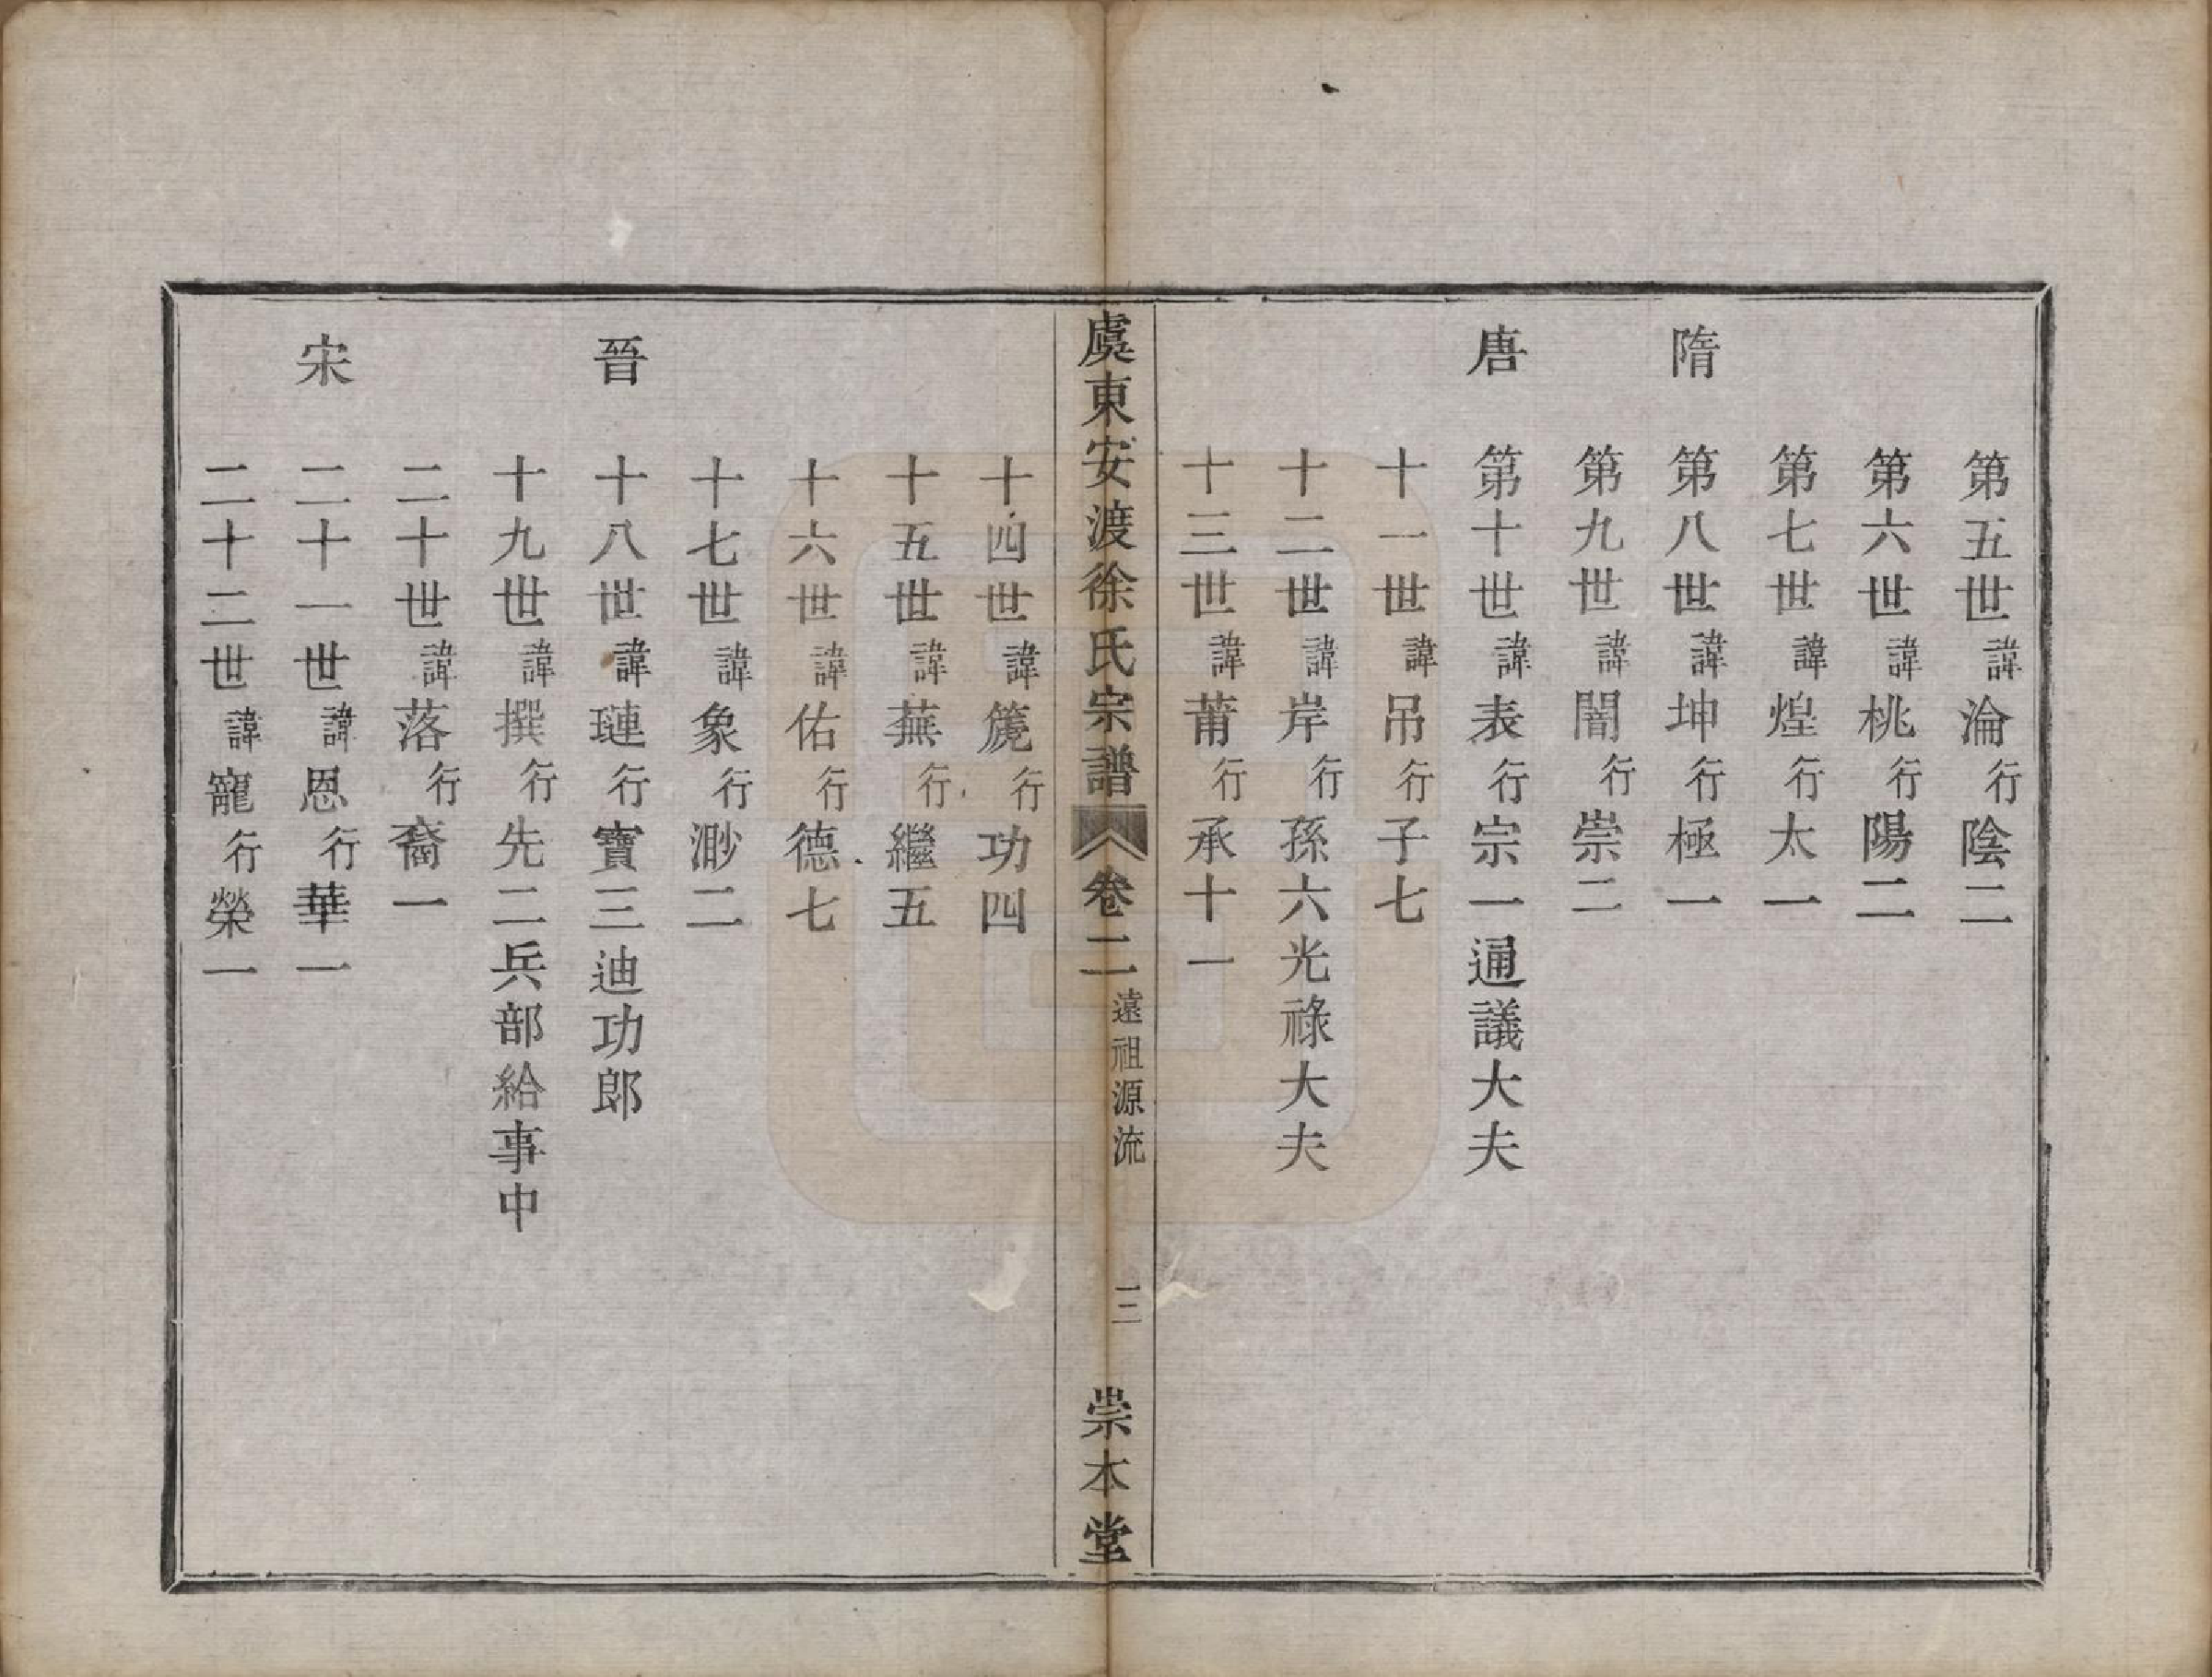 第五世諱淪行陰二
第六世諱桃行陽二
第七世諱煌行太一
隋 第八世諱坤行極一
第九世諱闇行崇二
唐 第十世諱表行宗一通議大夫
十一世諱吊行子七
十二世諱岸行孫六光祿大夫
十三世諱莆行承十一
虞東安渡徐氏宗譜 卷二 遠祖源流 三 崇本堂
十四世諱篪行功四
十五世諱蕪行繼五
十六世諱佑行德七
十七世諱象行渺二
晉 十八世諱璉行寶三迪功郎
十九世諱撰行先二兵部給事中
二十世諱落行裔一
宋 二十一世諱恩行華一
二十二世諱寵行榮一